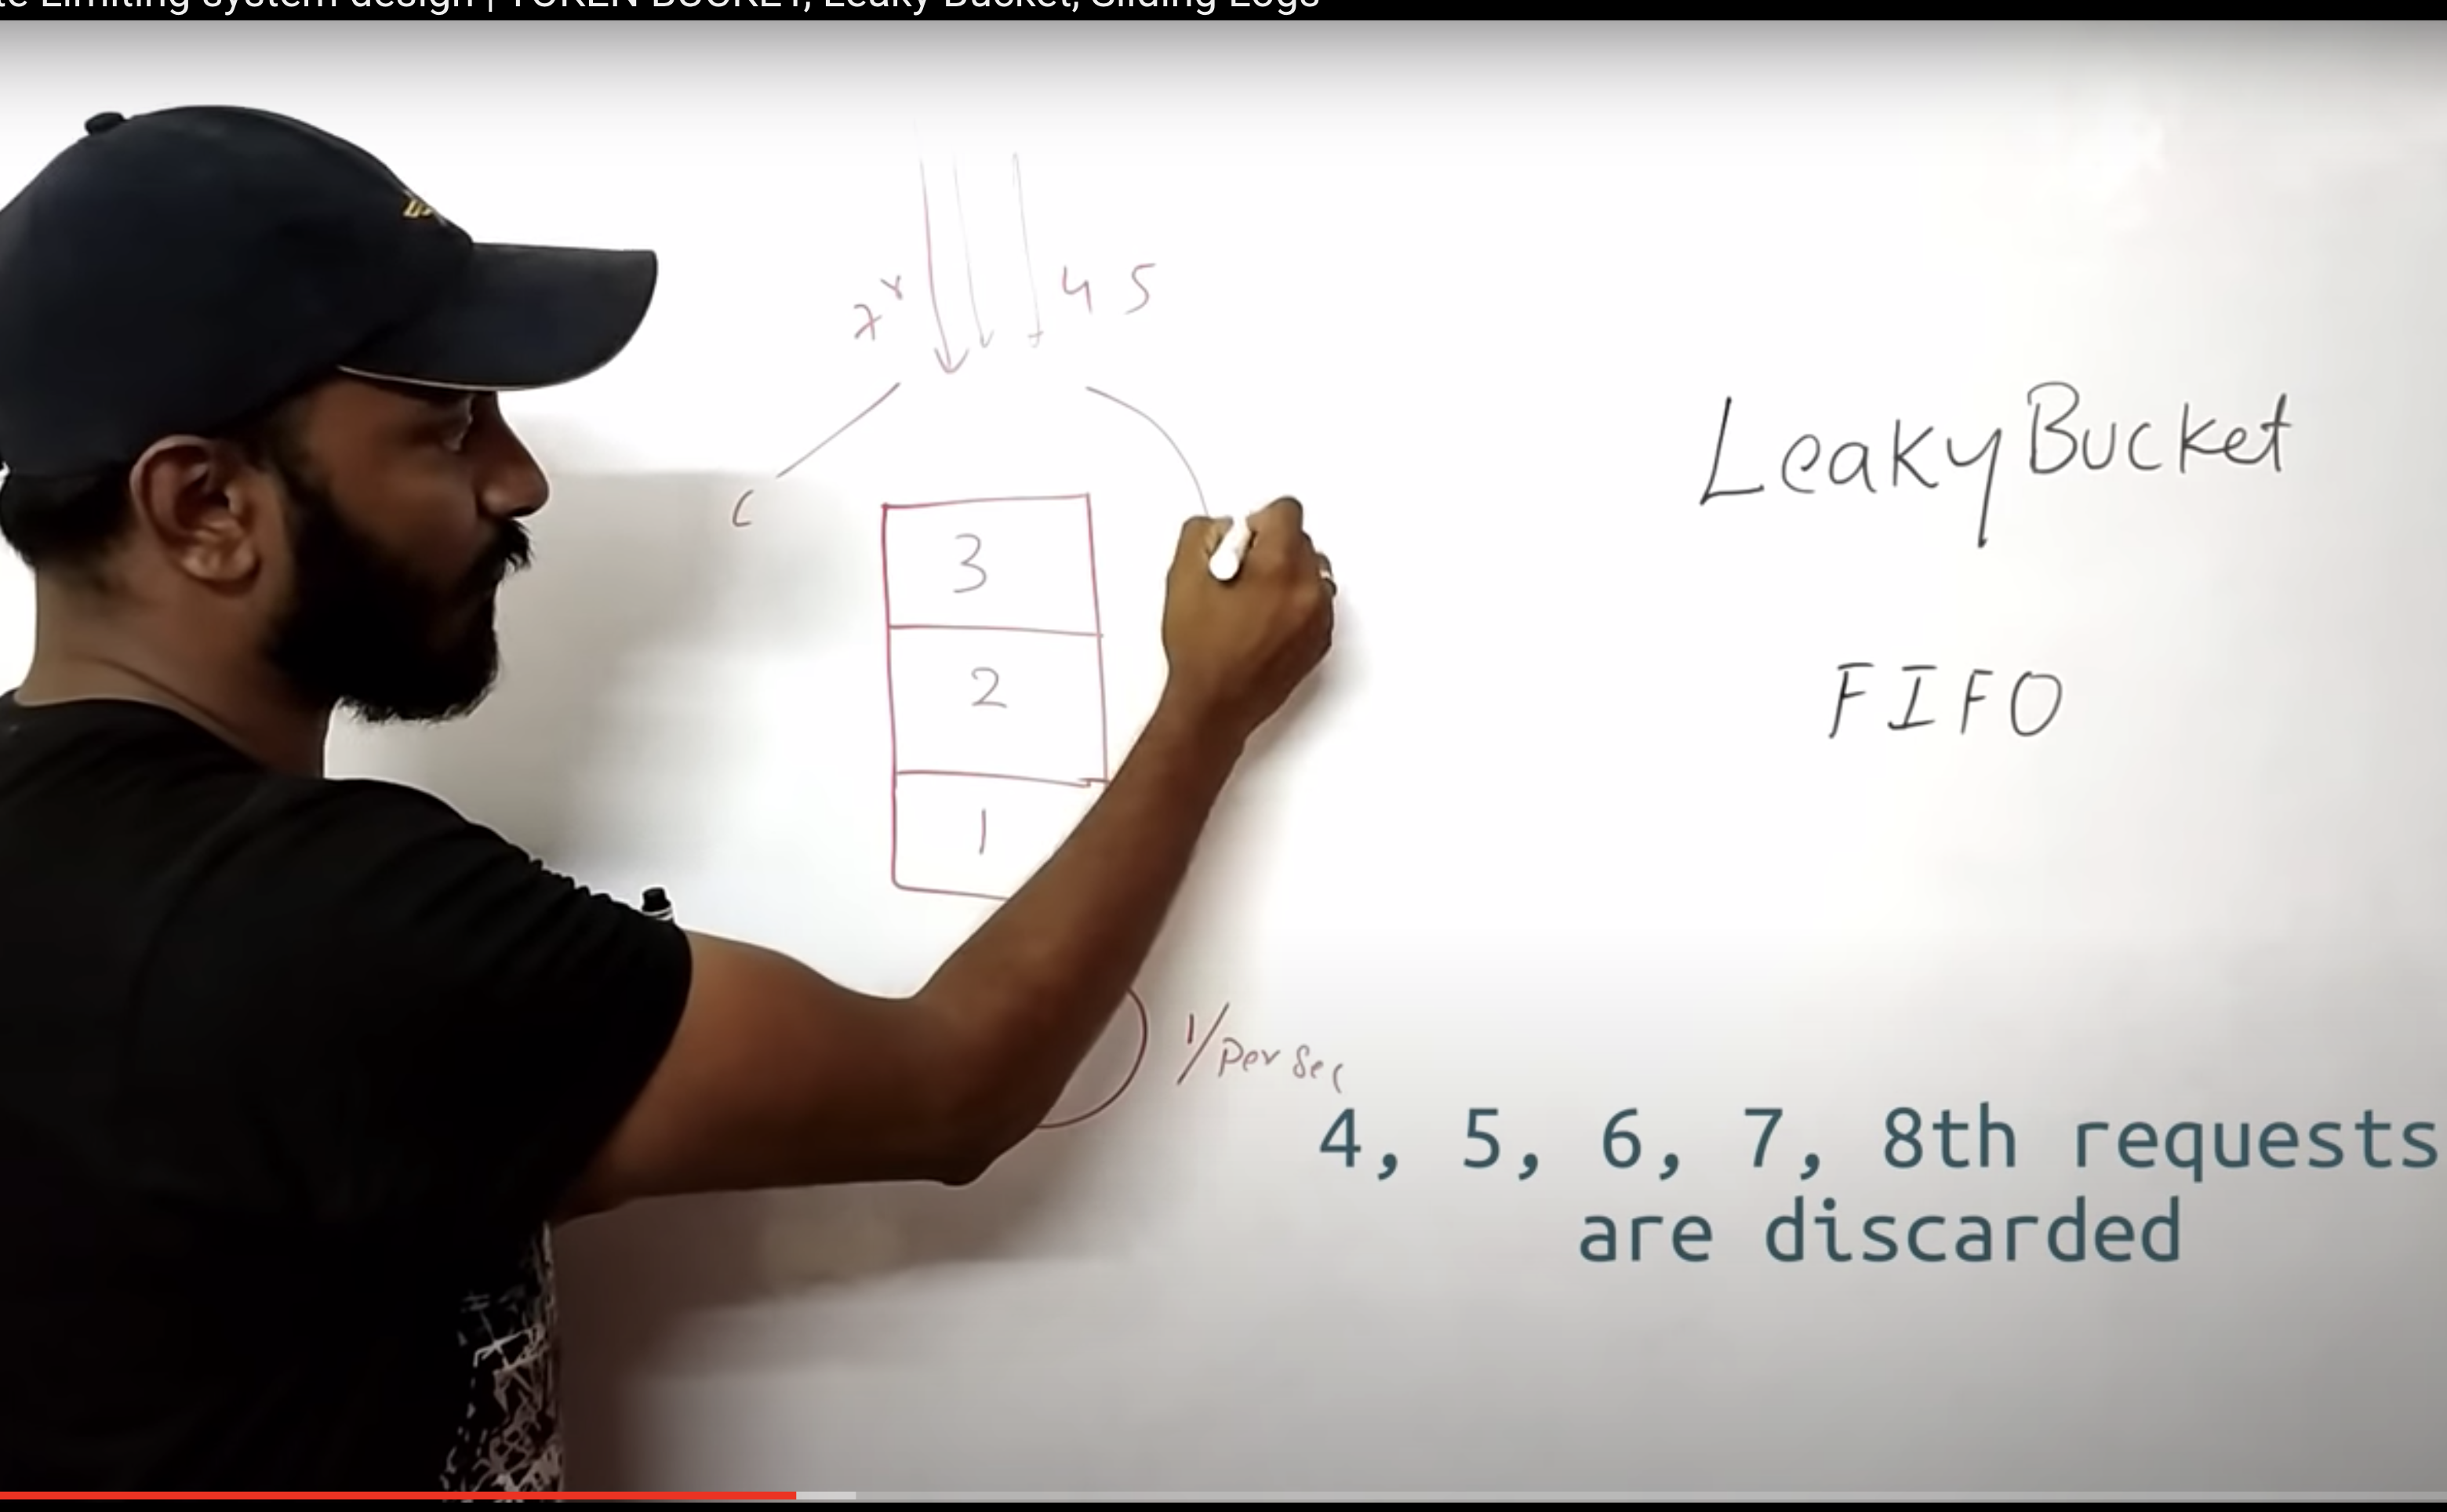 Limiting system design | TOKEN BUCKET, Leaky Bucket, Sliding Logs
4 5
3
2
1
1/per sec
Leaky Bucket
FIFO
4, 5, 6, 7, 8th requests
are discarded